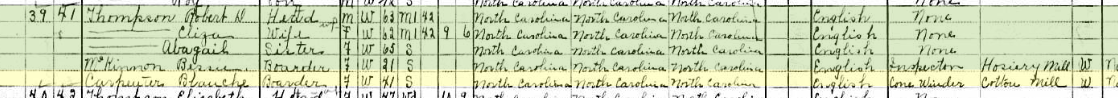 39 41 Thompson Robert D Head M W 63 M1 42 North Carolina North Carolina North Carolina English None
Eliza Wife F W 62 M1 42 9 6 North Carolina North Carolina North Carolina English None
Abagail Sister F W 65 S North Carolina North Carolina North Carolina English None
McKinnon Bessie Boarder F W 21 S North Carolina North Carolina North Carolina English Inspector Hosiery Mill W
Carpenter Blanche Boarder F W 41 S North Carolina North Carolina North Carolina English Cone Winder Cotton Mill W